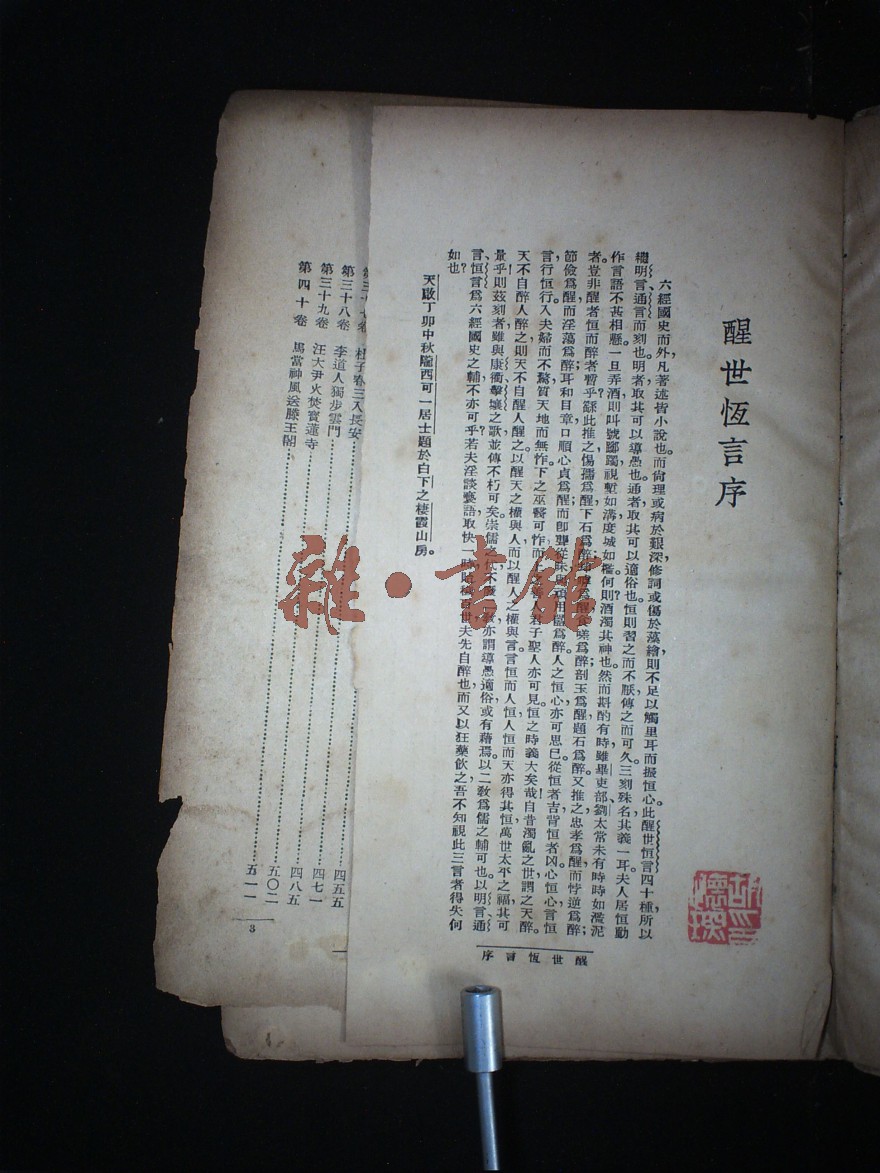 醒世恆言序
六經國史而外凡著述皆小說也而尙理或病於艱深修詞或傷於藻繪則不足以觸里耳而振恒心此醒世恒言四十種所以
繼明言通言而刻也明者取其可以導愚也通者取其可以適俗也恒則習之而不厭傳之而可久三刻殊名其義一耳夫人居恒動
作言語不甚相懸一旦弄酒則叫號躑躅視塹如溝度城如檻何則酒濁其神也然而斟酌有時雖畢吏部劉太常未有時時如濫泥
者豈非醒者恒而醉者暫乎繇此推之惕孺爲醒下石爲醉
爲醒食嗟爲醉剖玉爲醒題石爲醉又推之忠孝爲醒而悖逆爲醉
節儉爲醒而淫蕩爲醉耳和目章口順心貞爲醒而卽聾從昧與頑用嚚爲醉人之恒心亦可思已從恒者吉背恒者凶心恒心言恒
言行恒行入夫婦而不驚質天地而無怍下之巫醫可作而上之善人君子聖人亦可見恒之時義大矣哉自昔濁亂之世謂之天醉
天不自醉人醉之則天不自醒人醒之以醒天之權與人而以醒人之權與言言恒而人恒人恒而天亦得其恒萬世太平之福其可
量乎則茲刻者雖與康衢擊壤之歌並傳不朽可矣崇儒之代不
亦謂導愚適俗或有藉焉以二敎爲儒之輔可也以明言通
言恒言爲六經國史之輔不亦可乎若夫淫談褻語取快一時貽穢百世夫先自醉也而又以狂藥飮之吾不知視此三言者得失何
如也
天啟丁卯中秋隴西可一居士題於白下之棲霞山房。
醒世恆言序
杜子春三入長安
四五五
第三十八卷 李道人獨步雲門
四七一
第三十九卷 汪大尹火焚寶蓮寺
四八五
第四十卷 馬當神風送滕王閣
五〇二
五一一
3
雜·書館